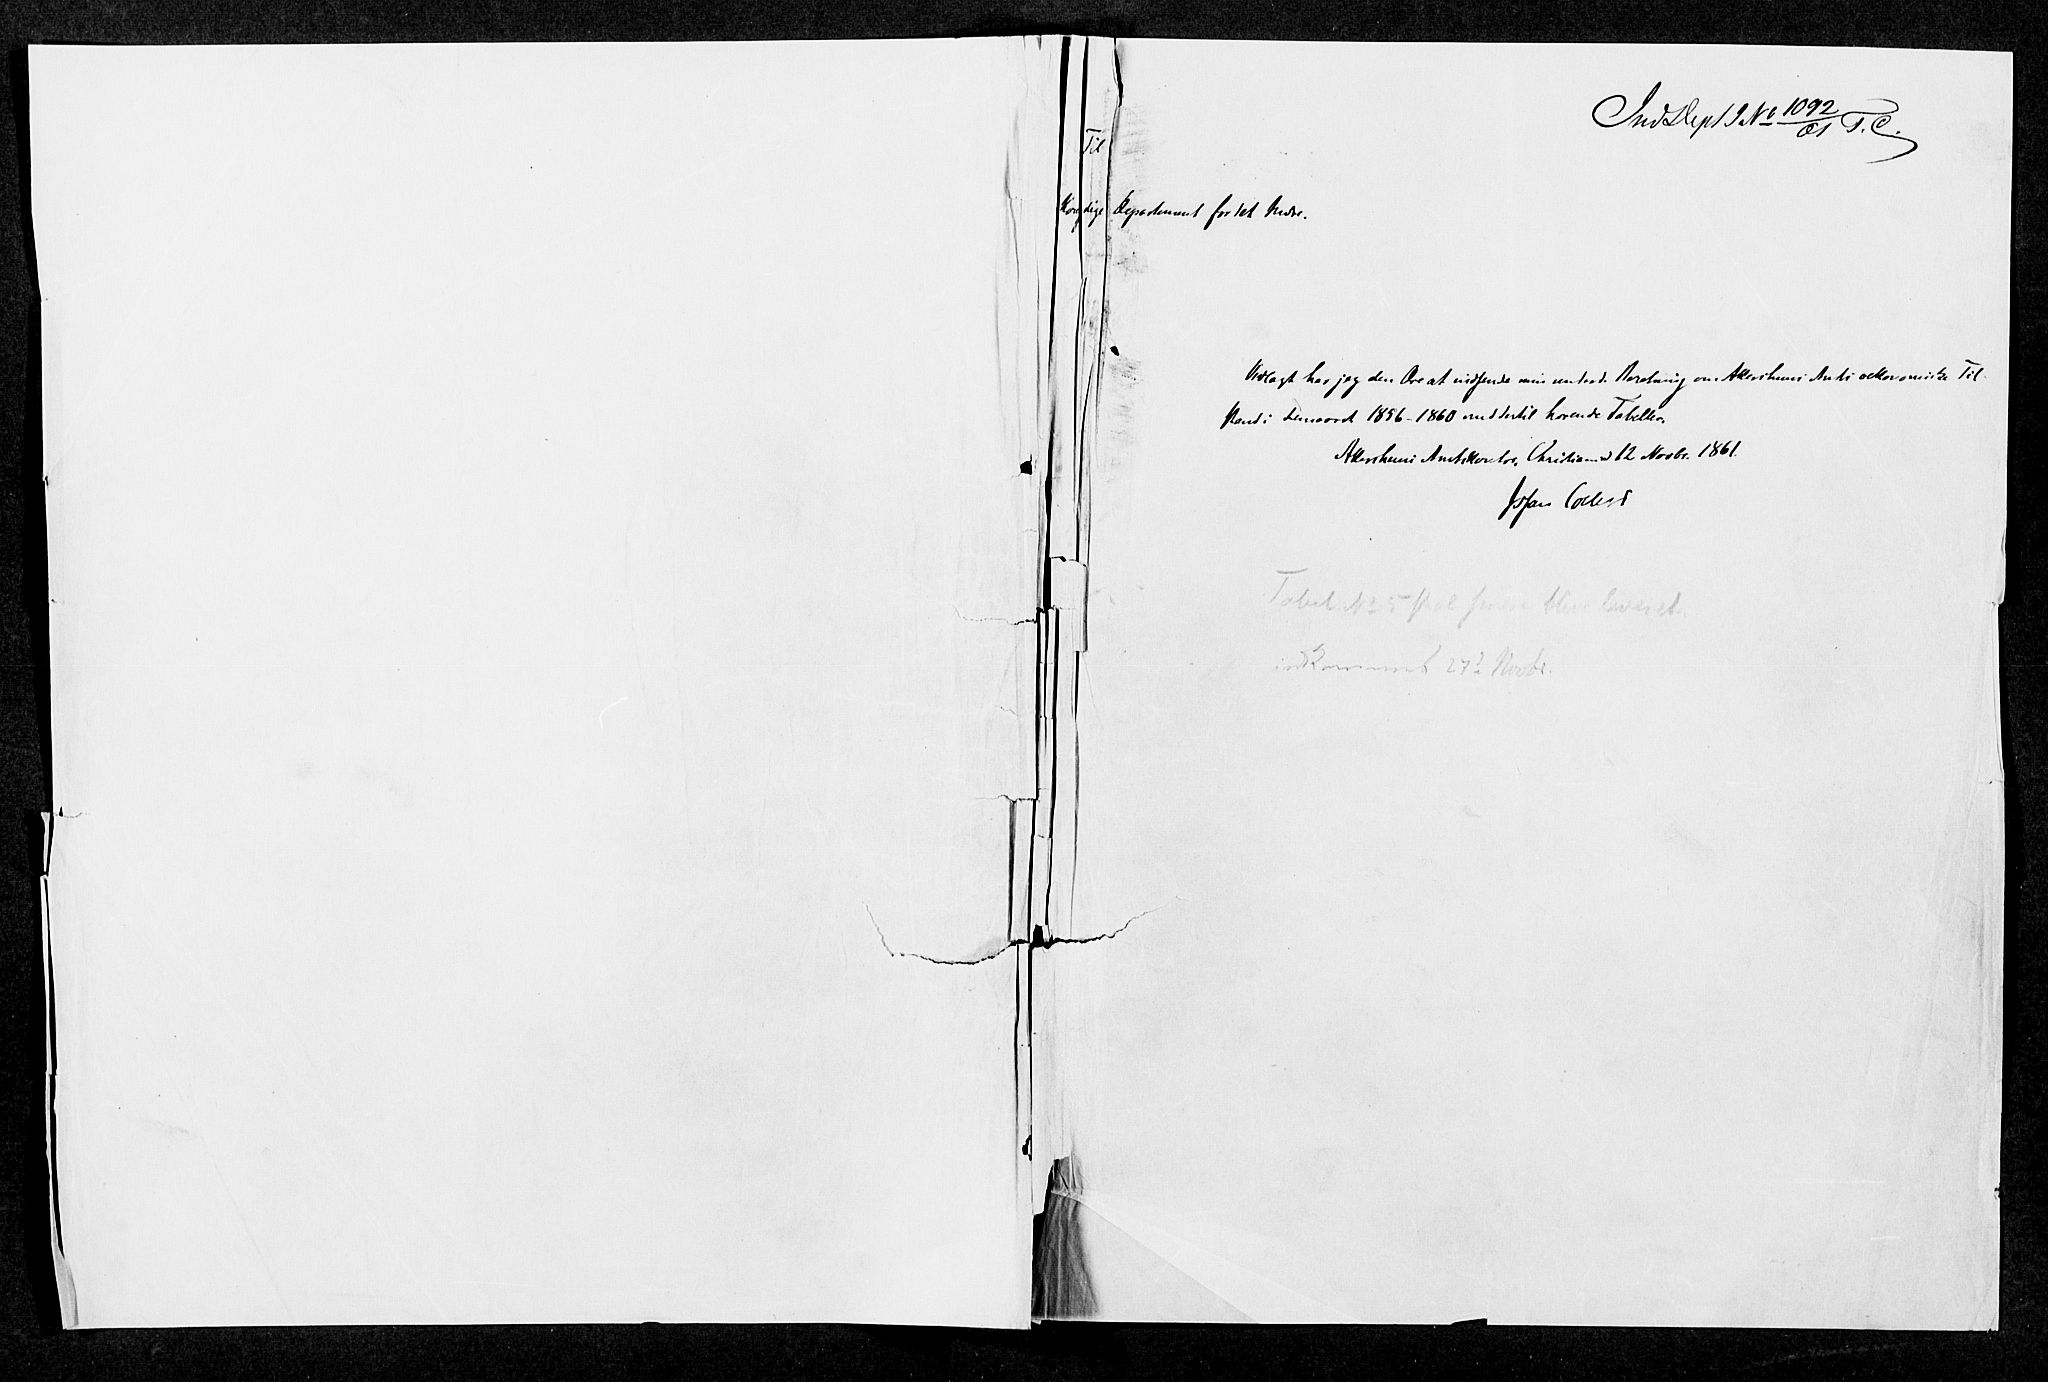 Ind Dept J No 1092/61 T. C.
Til
Kongelige Departement for det Indre.
Vedlagt har jeg den Ære at indsende min underd. Beretning om Akershuus Amts oekonomiske Til-
stand i Femaaret 1856-1860 med dertil hørende Tabeller.
Akershuus Amtskontor, Christiania 12 Novbr. 1861.
Collett
Tabel No 5 skal senere blive leveret.
indkommet 27de Novbr.